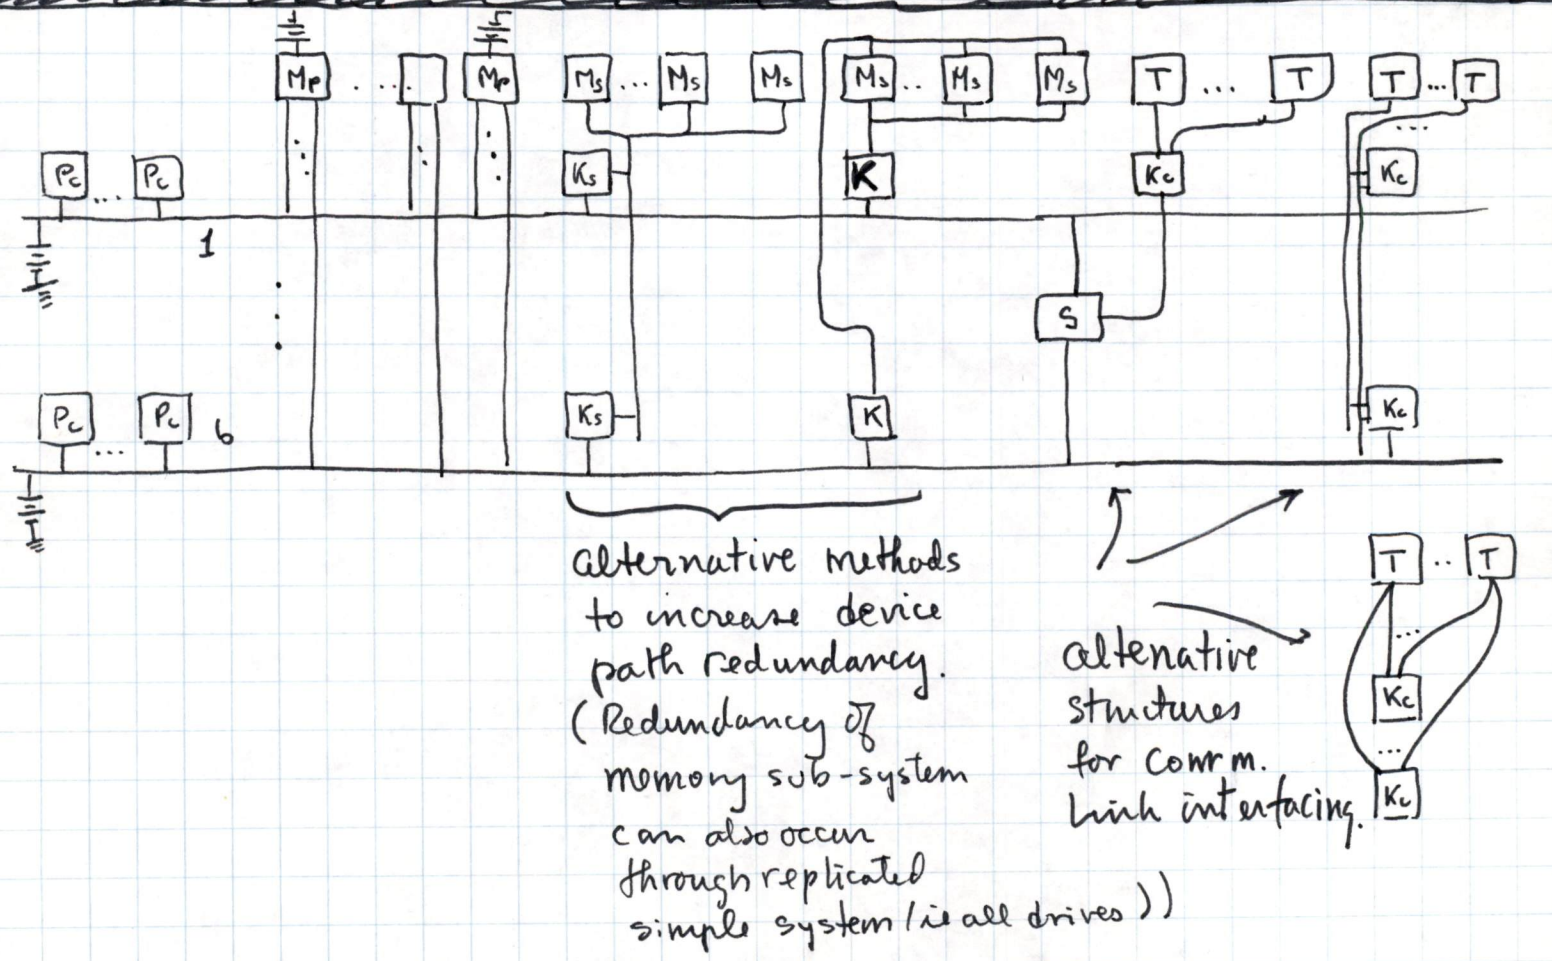 Mp ... Mp Ms ... Ms Ms Ms .. Ms Ms T ... T T ... T
...
Pc ... Pc Ks K Kc Kc
1
S
Pc ... Pc 6 Ks K Kc
alternative methods
to increase device
path redundancy.
(Redundancy of
memory sub-system
can also occur
through replicated
simple system (ie all drives))
T .. T
...
Kc
...
Kc
altenative
structures
for comm.
link interfacing.